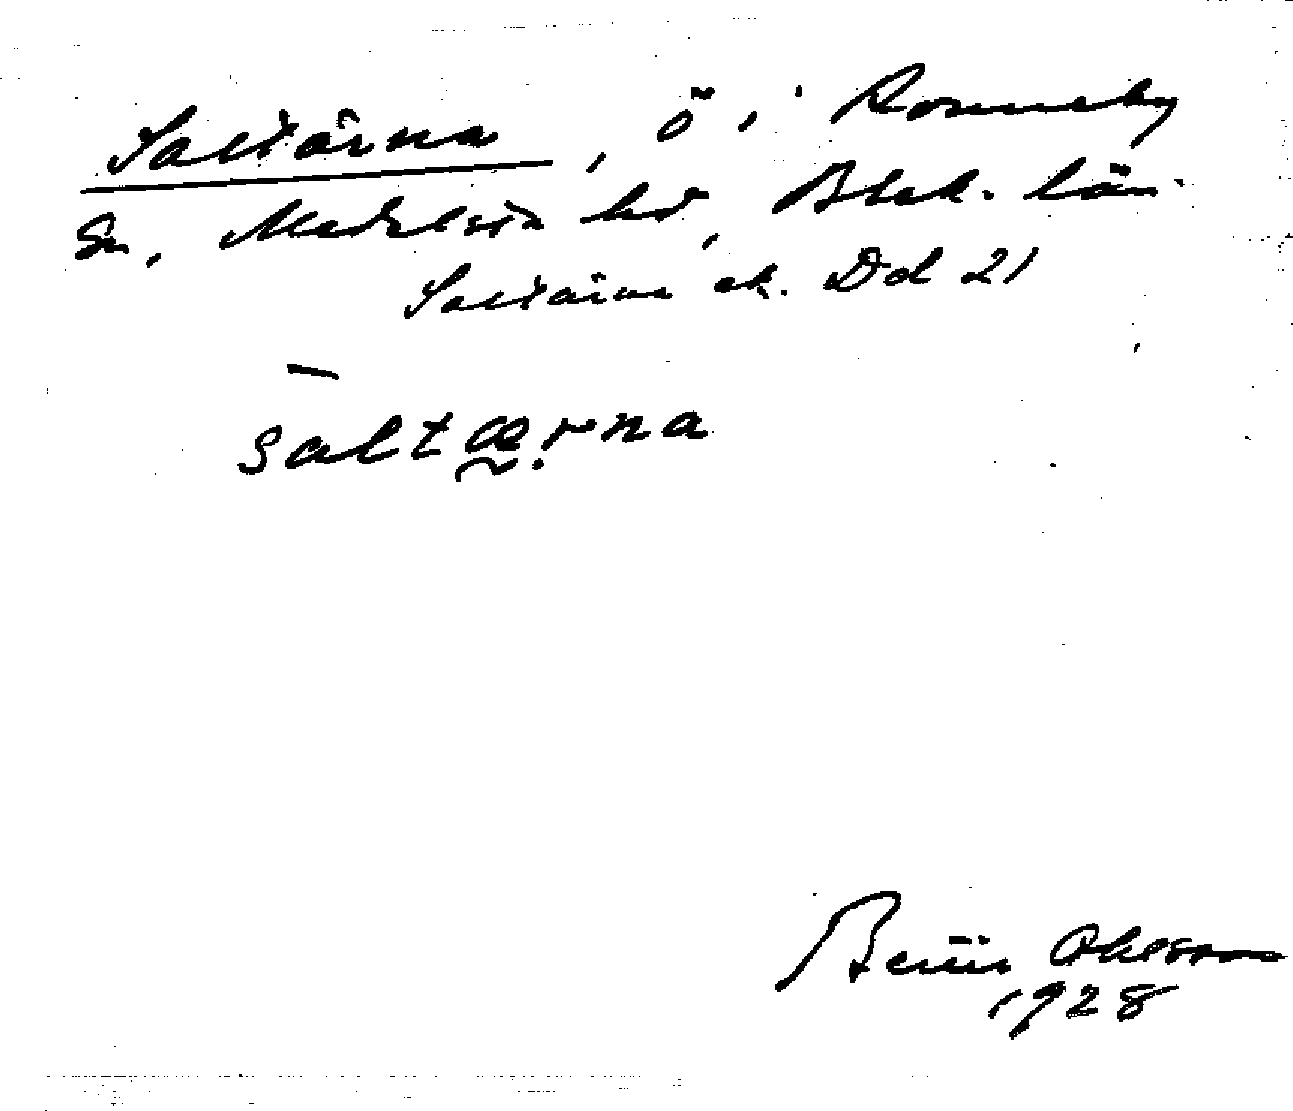 Saltärna, ö i Ronneby
sn, Medelsta hd, Blek. län.
Saltärna ek. Dd 21
saltærna
Bertil Ohlsson
1928